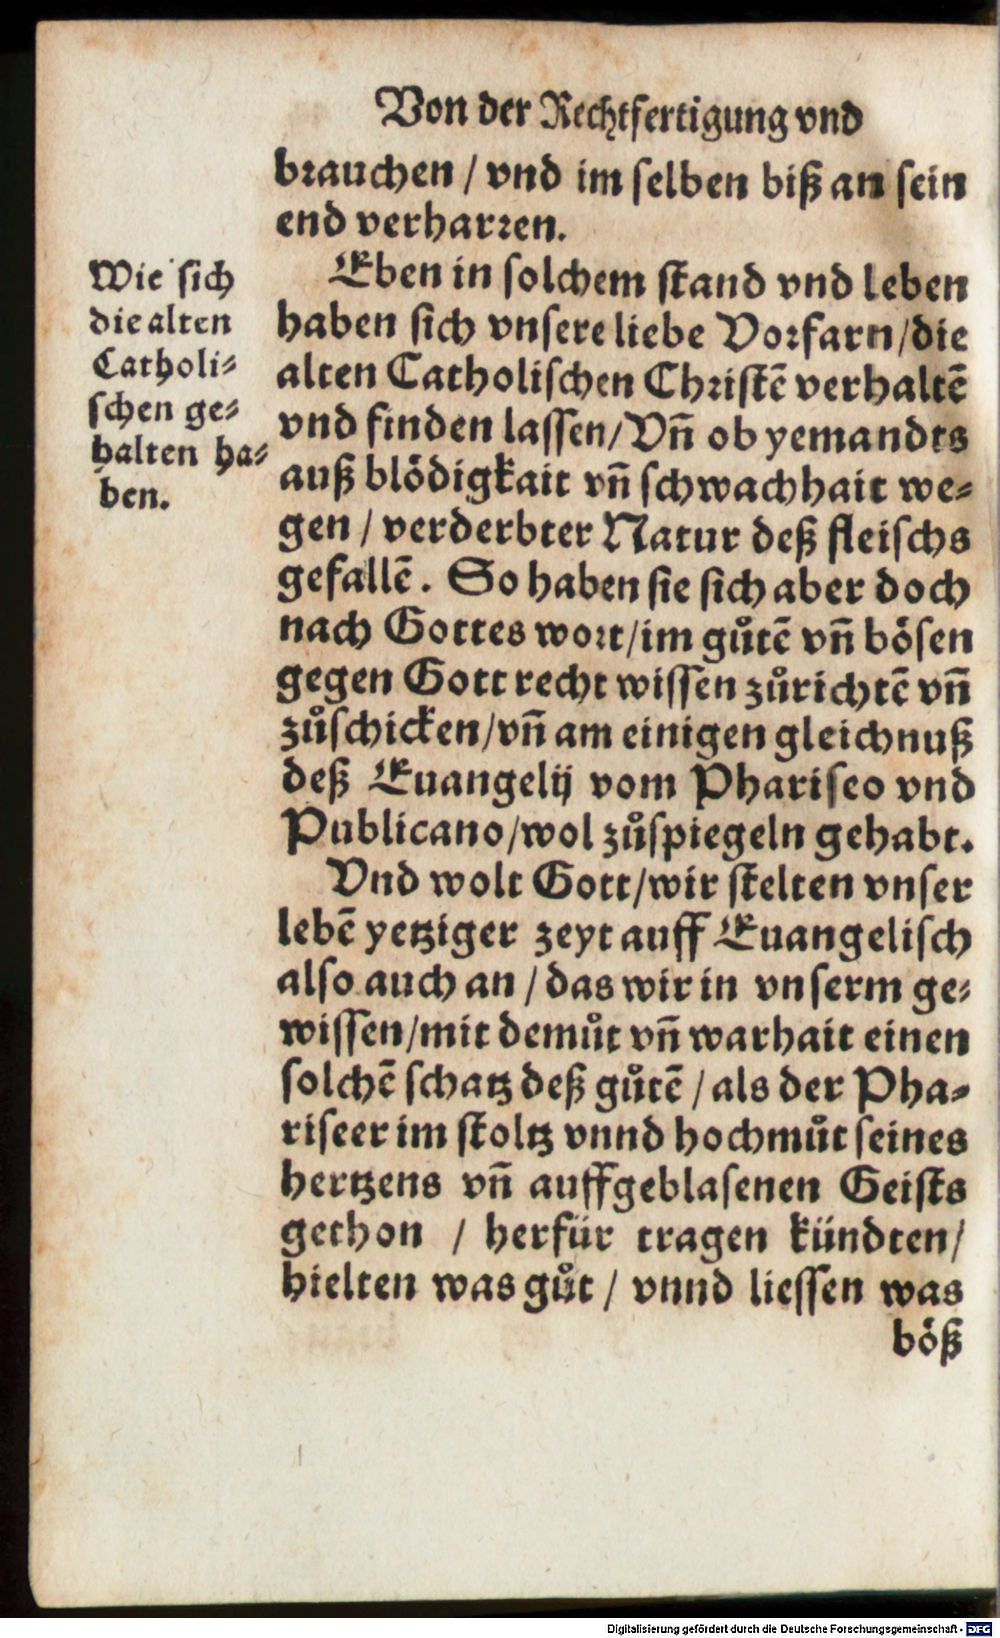 Von der Rechtfertigung vnd
brauchen / vnd im selben biß an sein
end verharren.
Eben in solchem stand vnd leben
haben sich vnsere liebe Vorfarn/die
alten Catholischen Christẽ verhaltẽ
vnd finden lassen/Vñ ob yemandts
auß blödigkait vñ schwachhait we⸗
gen / verderbter Natur deß fleischs
gefallẽ. So haben sie sich aber doch
nach Gottes wort/im gůtẽ vñ bösen
gegen Gott recht wissen zůrichtẽ vñ
zůschicken/vñ am einigen gleichnuß
deß Euangelij vom Phariseo vnd
Publicano/wol zůspiegeln gehabt.
Vnd wolt Gott/wir stelten vnser
lebẽ yetziger zeyt auff Euangelisch
also auch an / das wir in vnserm ge⸗
wissen/mit demůt vñ warhait einen
solchẽ schatz deß gůtẽ / als der Pha⸗
riseer im stoltz vnnd hochmůt seines
hertzens vñ auffgeblasenen Geists
gethon / herfür tragen kündten/
hielten was gůt / vnnd liessen was
böß
Wie sich
die alten
Catholi⸗
schen ge⸗
halten ha⸗
ben.
Digitalisierung gefördert durch die Deutsche Forschungsgemeinschaft - DFG